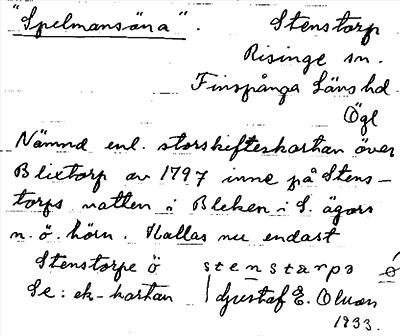 "Spelmansöna". Stenstorp
Risinge sn.
Finspånga Läns hd.
Ögl
Nämnd enl. storskifteskartan över
Blixtorp av 1797 inne på Stens-
torps vatten i Bleken i S. ägors
n. ö. hörn. Kallas nu endast
Stenstorpe ö stenstarpə ǿ
Se: ek-kartan Gustaf E. Olsson
1933.